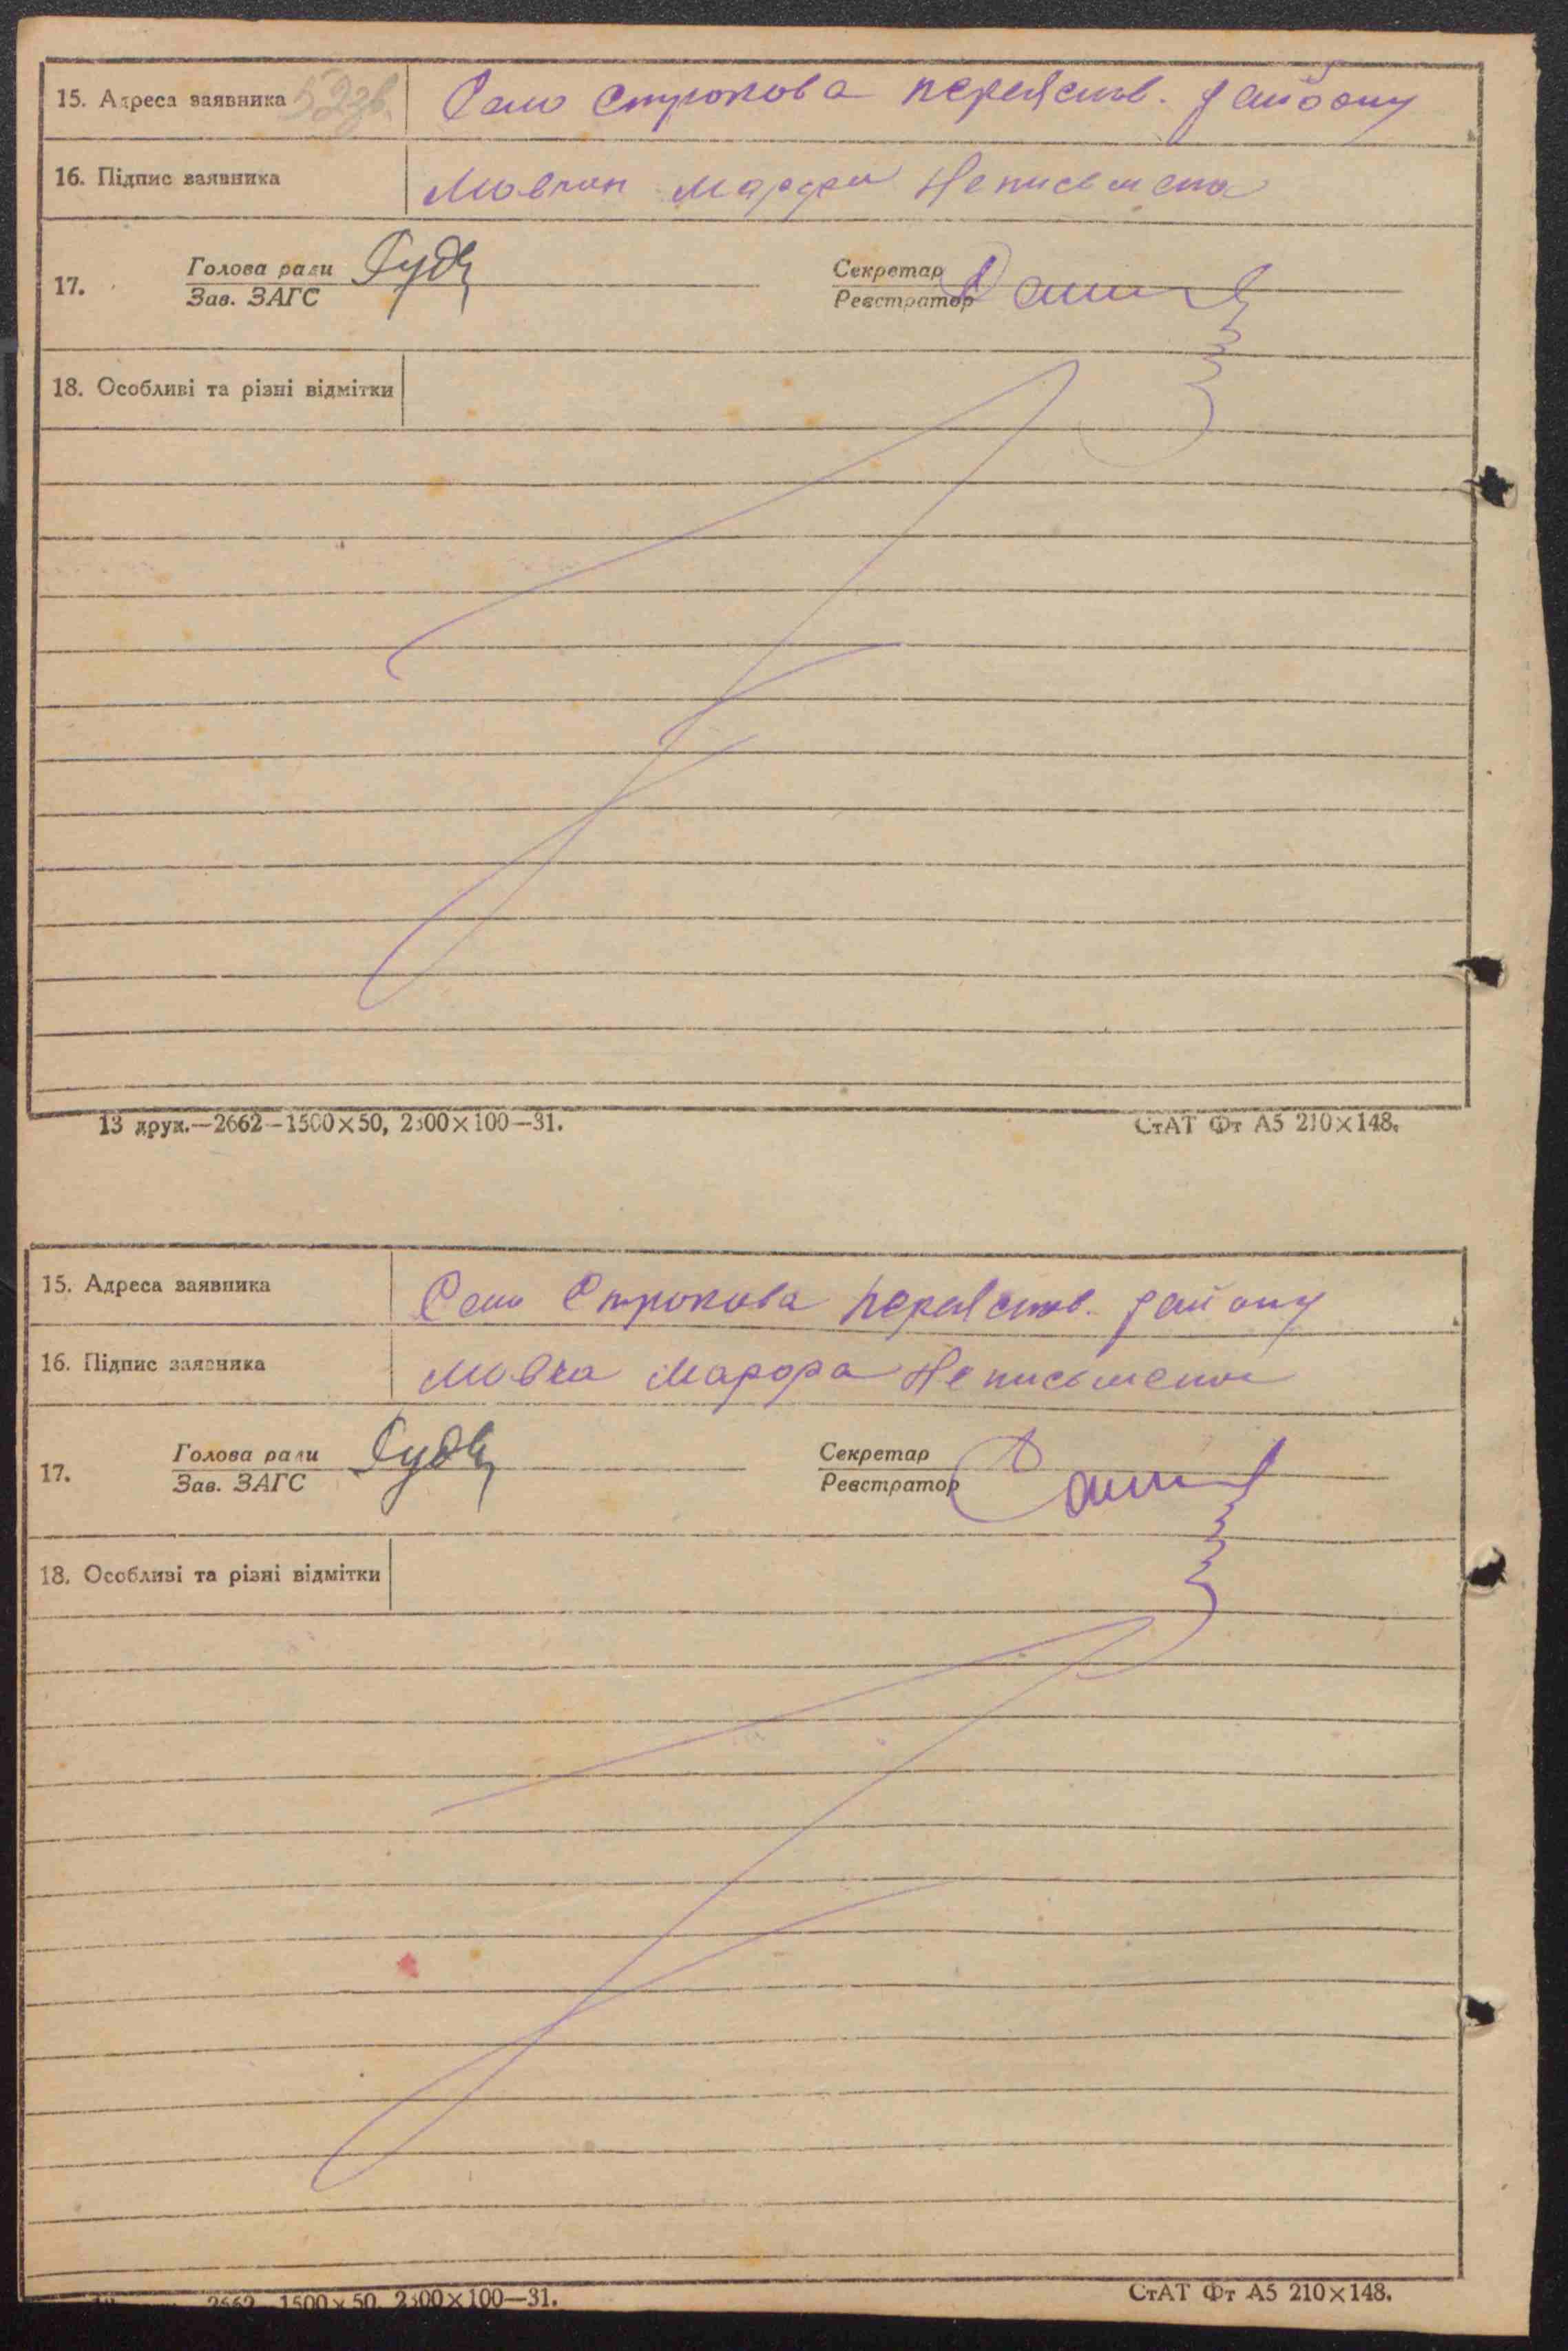 15. Адреса заявника 52зв. Село Строкова переяслв. району
16. Підпис заявника Мовчан Марфа Неписьмена
17. Голова ради Секретар
Зав. ЗАГС Реєстратор
18. Особливі та різні відмітки
13 друк.—2662—1500×50, 2300×100—31. СтАТ Фт А5 210×148.
15. Адреса заявника Село Строкова переяслв. району
16. Підпис заявника Мовча Марфа Неписьмена
17. Голова ради Секретар
Зав. ЗАГС Реєстратор
18. Особливі та різні відмітки
2662 1500×50, 2300×100—31. СтАТ Фт А5 210×148.